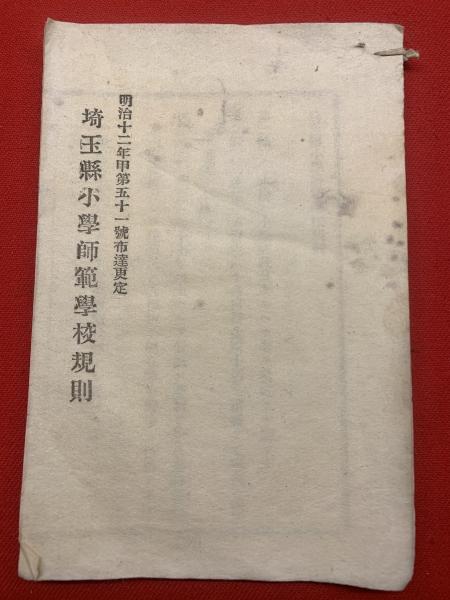 明治十二年甲第五十一號布達更定
埼玉縣小學師範學校規則